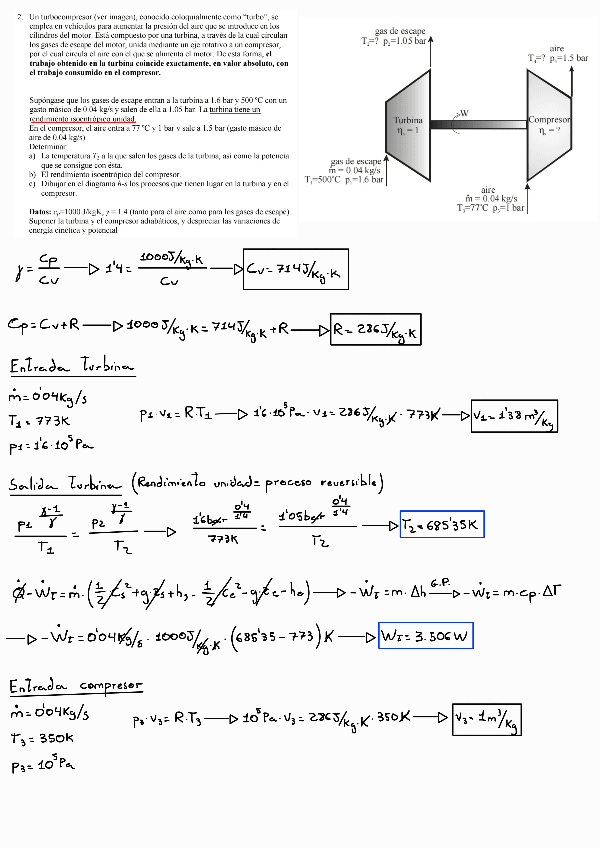 2. Un turbocompresor (ver imagen), conocido coloquialmente como "turbo", se
emplea en vehículos para aumentar la presión del aire que se introduce en los
cilindros del motor. Está compuesto por una turbina, a través de la cual circulan
los gases de escape del motor, unida mediante un eje rotativo a un compresor,
por el cual circula el aire con el que se alimenta el motor. De esta forma, el
trabajo obtenido en la turbina coincide exactamente, en valor absoluto, con
el trabajo consumido en el compresor.
Supóngase que los gases de escape entran a la turbina a 1.6 bar y 500 ºC con un
gasto másico de 0.04 kg/s y salen de ella a 1.05 bar. La turbina tiene un
rendimiento isoentrópico unidad.
En el compresor, el aire entra a 77 ºC y 1 bar y sale a 1.5 bar (gasto másico de
aire de 0.04 kg/s)
Determinar
a) La temperatura T2 a la que salen los gases de la turbina, así como la potencia
que se consigue con ésta.
b) El rendimiento isoentrópico del compresor.
c) Dibujar en el diagrama h-s los procesos que tienen lugar en la turbina y en el
compresor.
Datos: cp=1000 J/kgK, γ = 1.4 (tanto para el aire como para los gases de escape)
Suponer la turbina y el compresor adiabáticos, y despreciar las variaciones de
energía cinética y potencial
gas de escape
T2=? p2=1.05 bar
aire
T4=? p4=1.5 bar
W
Turbina
ηs = 1
Compresor
ηs = ?
gas de escape
ṁ = 0.04 kg/s
T1=500ºC p1=1.6 bar
aire
ṁ = 0.04 kg/s
T3=77ºC p3=1 bar
γ = Cp/Cv → 1'4 = 1000J/Kg·K / Cv → Cv = 714J/Kg·K
Cp = Cv + R → 1000J/Kg·K = 714J/Kg·K + R → R = 286J/Kg·K
Entrada Turbina
ṁ = 0'04Kg/s
T1 = 773K
p1 = 1'6·10^5 Pa
p1·v1 = R·T1 → 1'6·10^5 Pa·v1 = 286J/Kg·K·773K → v1 = 1'38 m³/Kg
Salida Turbina (Rendimiento unidad = proceso reversible)
p1^(γ-1/γ)/T1 = p2^(γ-1/γ)/T2 → 1'6bar^(0'4/1'4)/773K = 1'05bar^(0'4/1'4)/T2 → T2 = 685'35K
Q̇ - ẆT = ṁ·(1/2 Cs² + g·zs + hs - 1/2 Ce² - g·ze - he) → -ẆT = ṁ·Δh G.P. → -ẆT = ṁ·cp·ΔT
→ -ẆT = 0'04Kg/s · 1000J/Kg·K · (685'35 - 773)K → ẆT = 3.506W
Entrada compresor
ṁ = 0'04Kg/s
T3 = 350K
p3 = 10^5 Pa
p3·v3 = R·T3 → 10^5 Pa·v3 = 286J/Kg·K·350K → v3 = 1m³/Kg